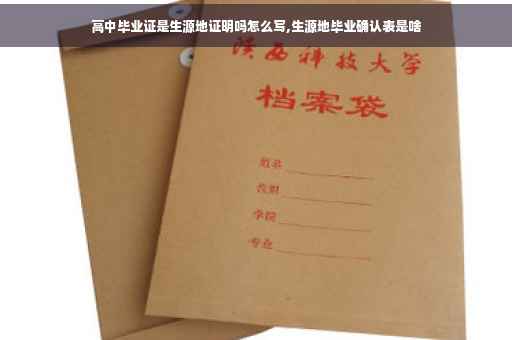 高中毕业证是生源地证明吗怎么写,生源地毕业确认表是啥
陕西科技大学
档案袋
姓名
性别
学院
专业